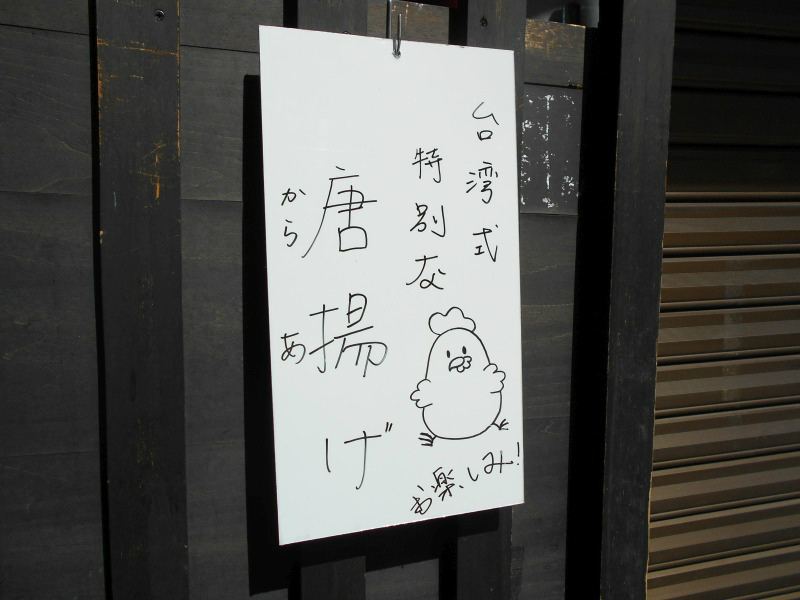 台湾式
特別な
唐揚げ
から
あ
お楽しみ!